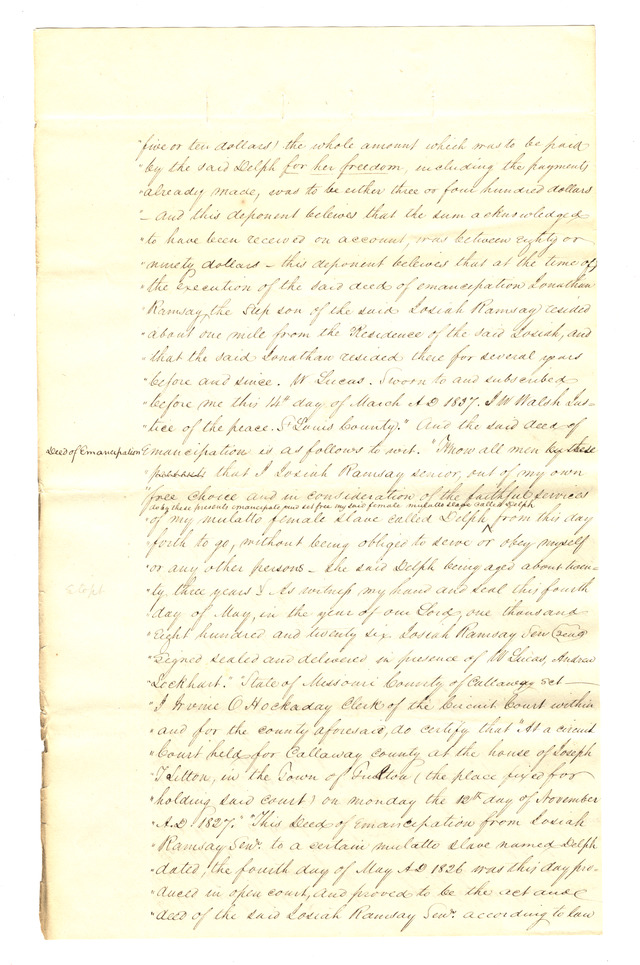 "five or ten dollars) the whole amount which was to be paid
"by the said Delph for her freedom, including the payments
"already made, was to be either three or four hundred dollars
"– And this deponent beleives that the sum acknowledged
"to have been received on account, was between eighty or
"ninety dollars – this deponent beleives that at the time of
"the Execution of the said deed of emancipation Jonathan
"Ramsay, the Step son of the said Josiah Ramsay resided
"about one mile from the Residence of the said Josiah, and
"that the said Jonathan resided there for several years
"before and since. W Lucas. Sworn to and subscribed
"before me this 14th day of March A D 1837. J W Walsh Jus-
"tice of the peace. St Louis County." And the said deed of
Deed of Emancipation Emancipation is as follows to wit. "Know all men by these
"presents that I Josiah Ramsay senior, out of my own
"free Choice and in consideration of the faithful services
do by these presents emancipate and set free my said female mulatto slave called Delph
"of my mulatto female slave called Delph ^ from this day
"forth to go, without being obliged to serve or obey myself
"or any other persons – She said Delph being aged about twen-
"ty three years & As witness my hand and seal this fourth
"day of May, in the year of our Lord, one thousand
"Eight hundred and twenty six. Josiah Ramsay Sen (seal)
"Signed sealed and delivered in presence of W Lucas, Andrew
"Lockhart." State of Missouri County of Callaway sct –
"I Irvine O Hockaday Clerk of the Circuit Court within
"and for the county aforesaid, do certify that "At a circuit
"Court held for Callaway county at the house of Joseph
"T Sitton, in the Town of Fulton (the place fixed for
"holding said court) on monday the 12th day of November
"A.D. 1827." "This Deed of Emancipation from Josiah
"Ramsay Senr. to a certain mulatto slave named Delph
"dated, the fourth day of May A D 1826 was this day pro-
"duced in open court, and proved to be the act and
"deed of the said Josiah Ramsay Senr. according to law